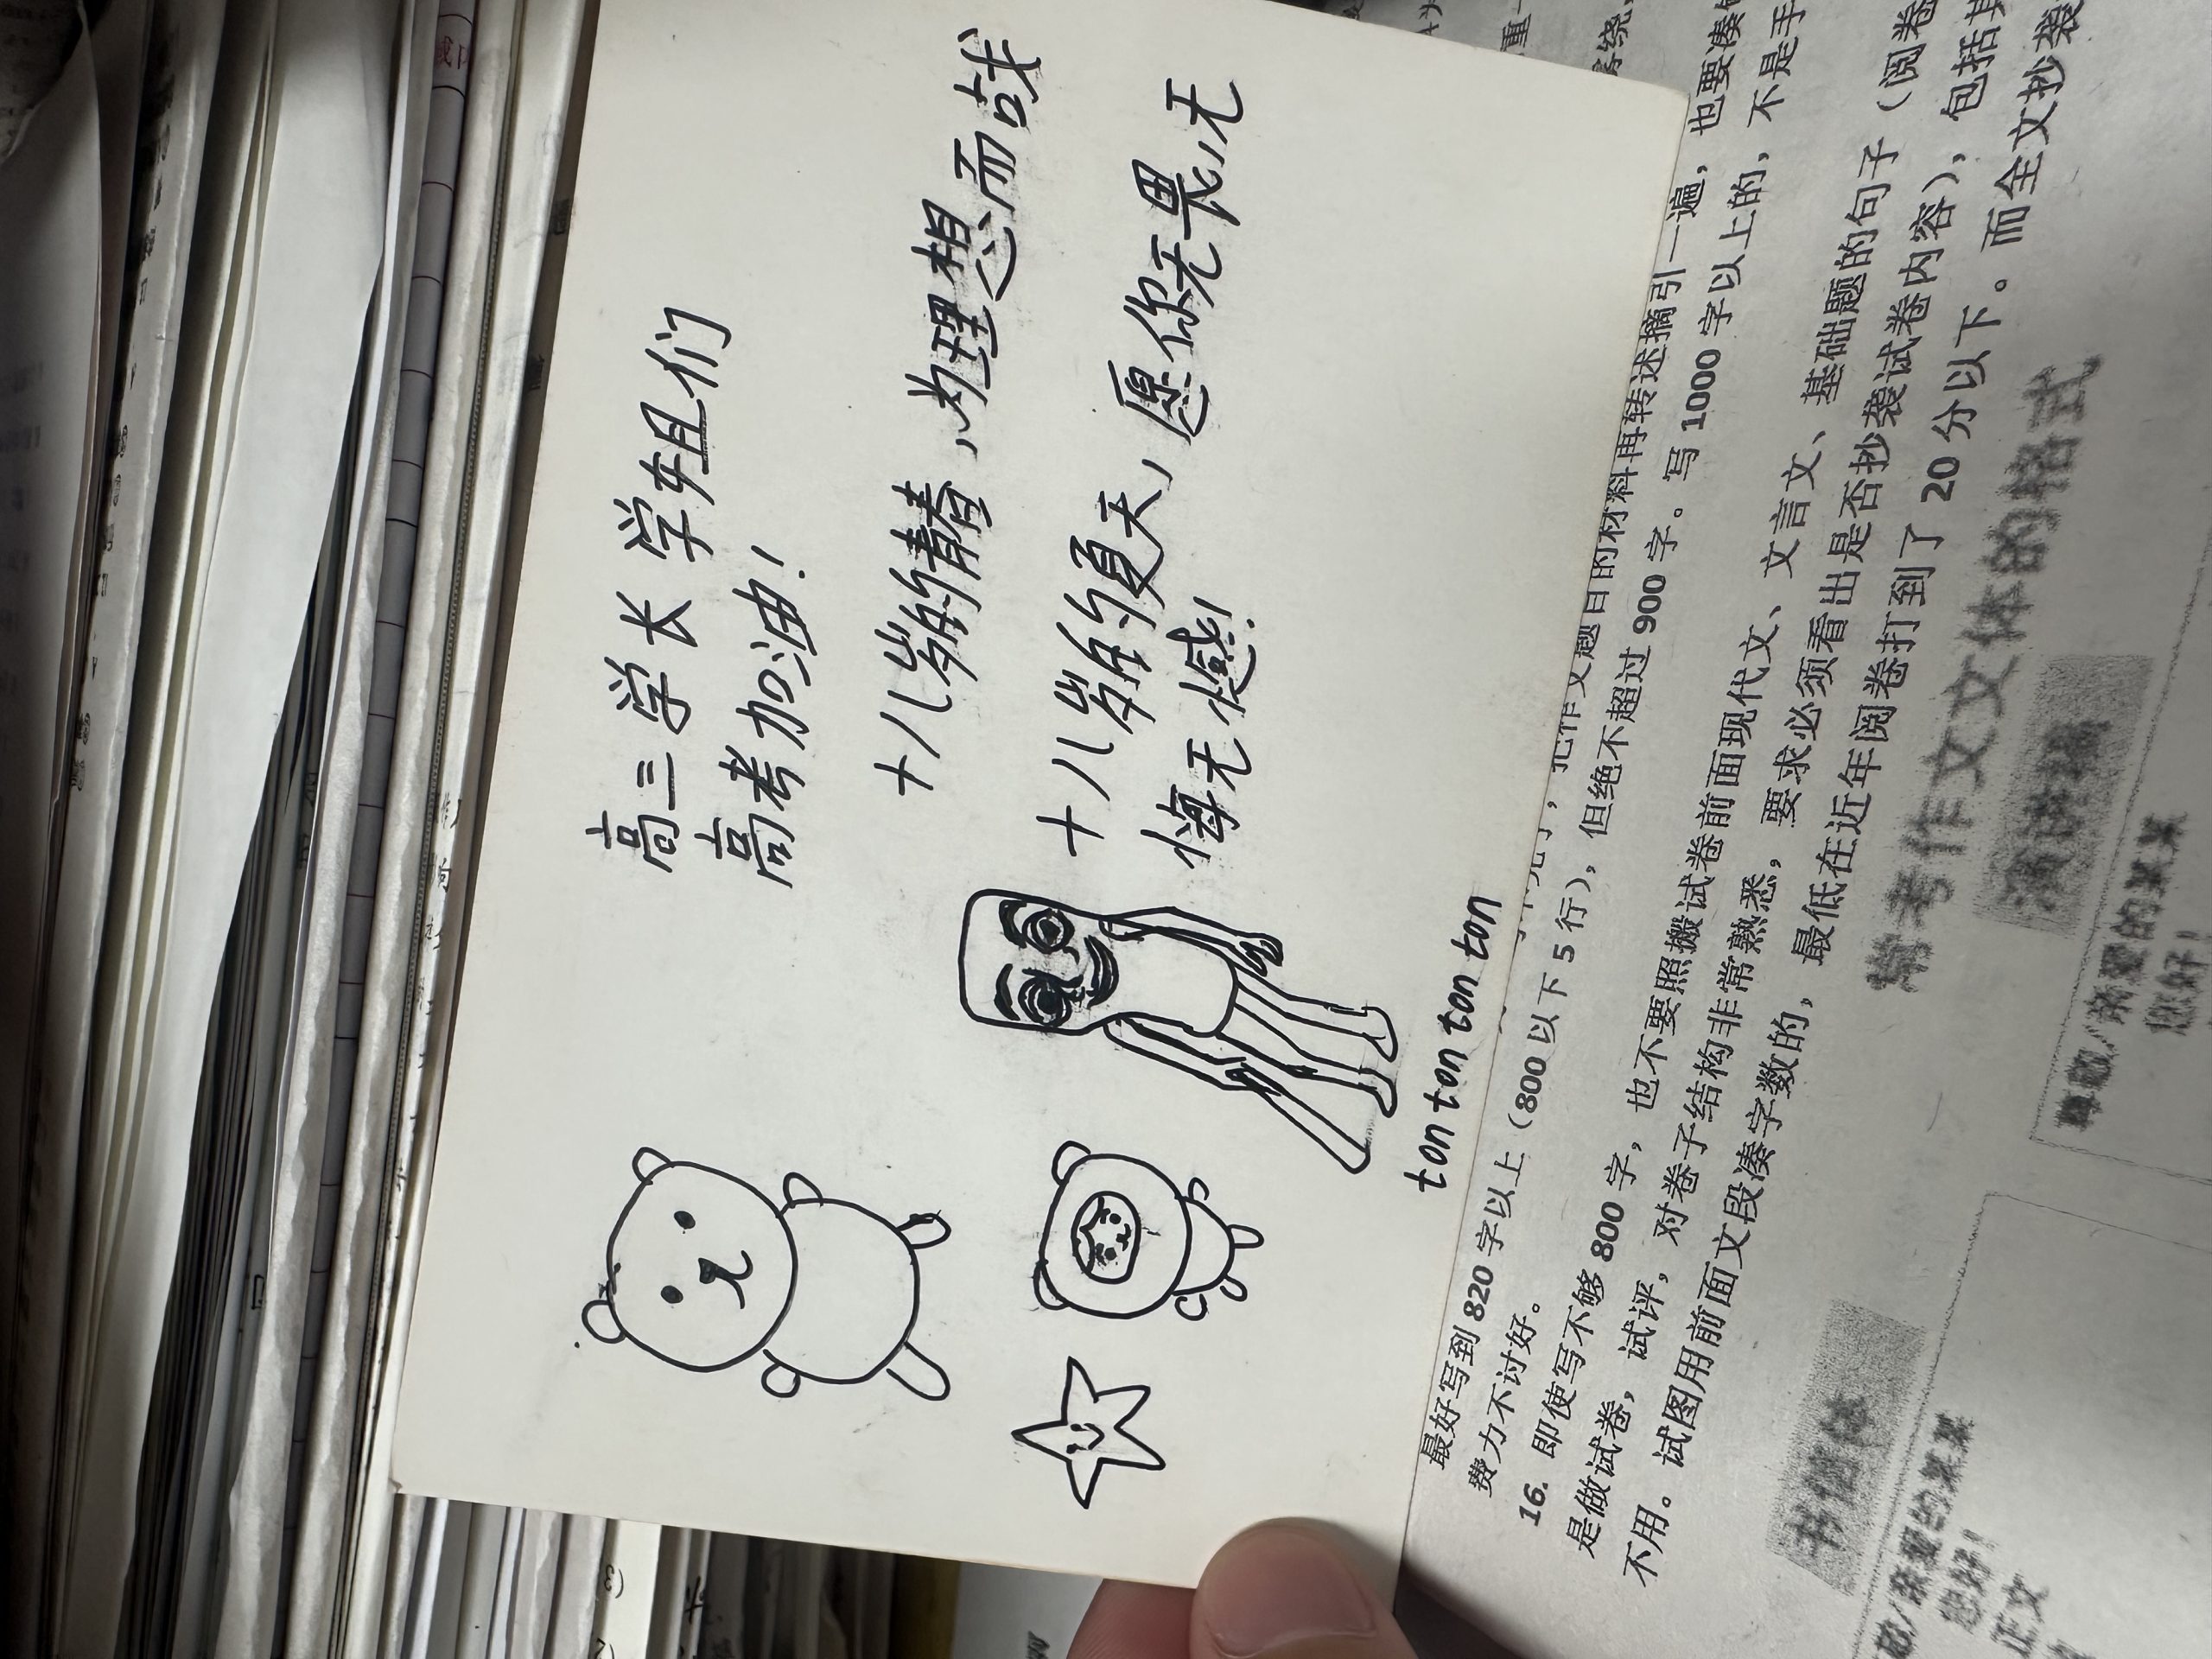 高三学长学姐们
高考加油！
十八岁的青春，为理想而战
十八岁的夏天，愿你无畏，无
悔无憾！
ton ton ton ton
最好写到 820 字以上（800 以下 5 行），但绝不超过 900 字。写 1000 字以上的，不是手
费力不讨好。
16. 即使写不够 800 字，也不要照搬试卷前面现代文、文言文、基础题的句子（阅卷
是做试卷，试评，对卷子结构非常熟悉，要求必须看出是否抄袭试卷内容），包括其
不用。试图用前面文段凑字数的，最低在近年阅卷打到了 20 分以下。而全文抄袭
常考作文文体的格式
演讲稿
尊敬/亲爱的某某
您好！
书信体
尊敬/亲爱的某某
您好！
正文